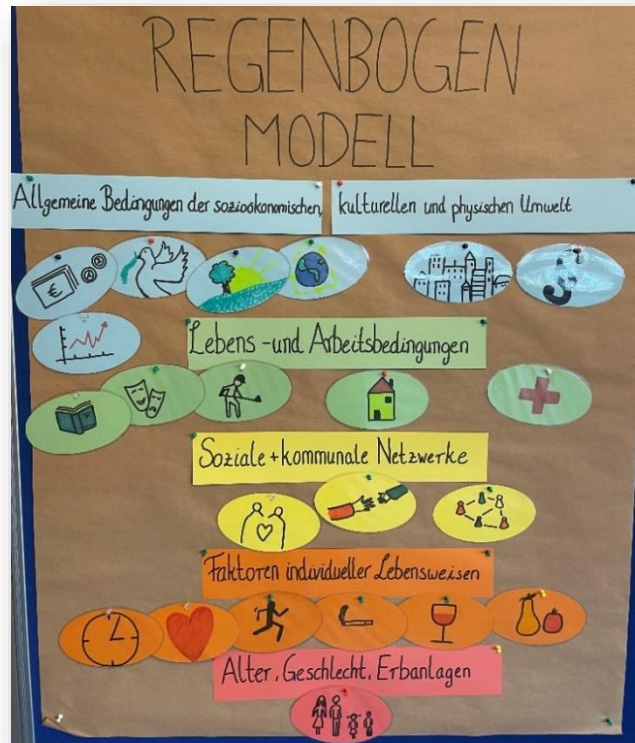 REGENBOGEN
MODELL
Allgemeine Bedingungen der sozioökonomischen, kulturellen und physischen Umwelt
€
Lebens- und Arbeitsbedingungen
Soziale + kommunale Netzwerke
Faktoren individueller Lebensweisen
Alter, Geschlecht, Erbanlagen